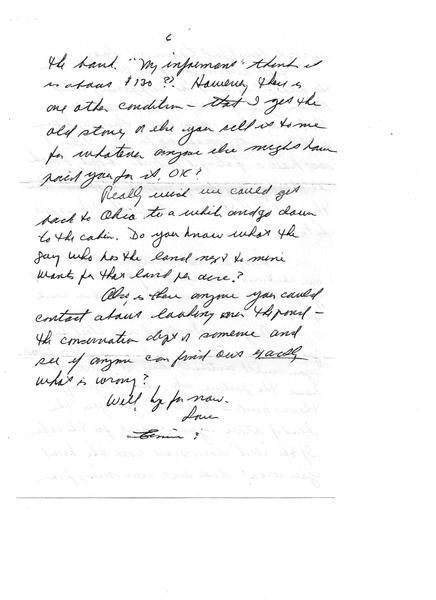 6
the band. "My informant" thinks it
is about $130?? However, there is
one other condition – that I get the
old stove or else you sell it to me
for whatever anyone else might have
paid you for it, OK?
Really wish we could get
back to Ohio to a while and go down
to the cabin. Do you know what the
guy who has the land next to mine
wants for that land per acre?
Also is there anyone you could
contact about looking over the pond –
the conservation dept or someone and
see if anyone can find out exactly
what is wrong?
Well, bye for now.
Love